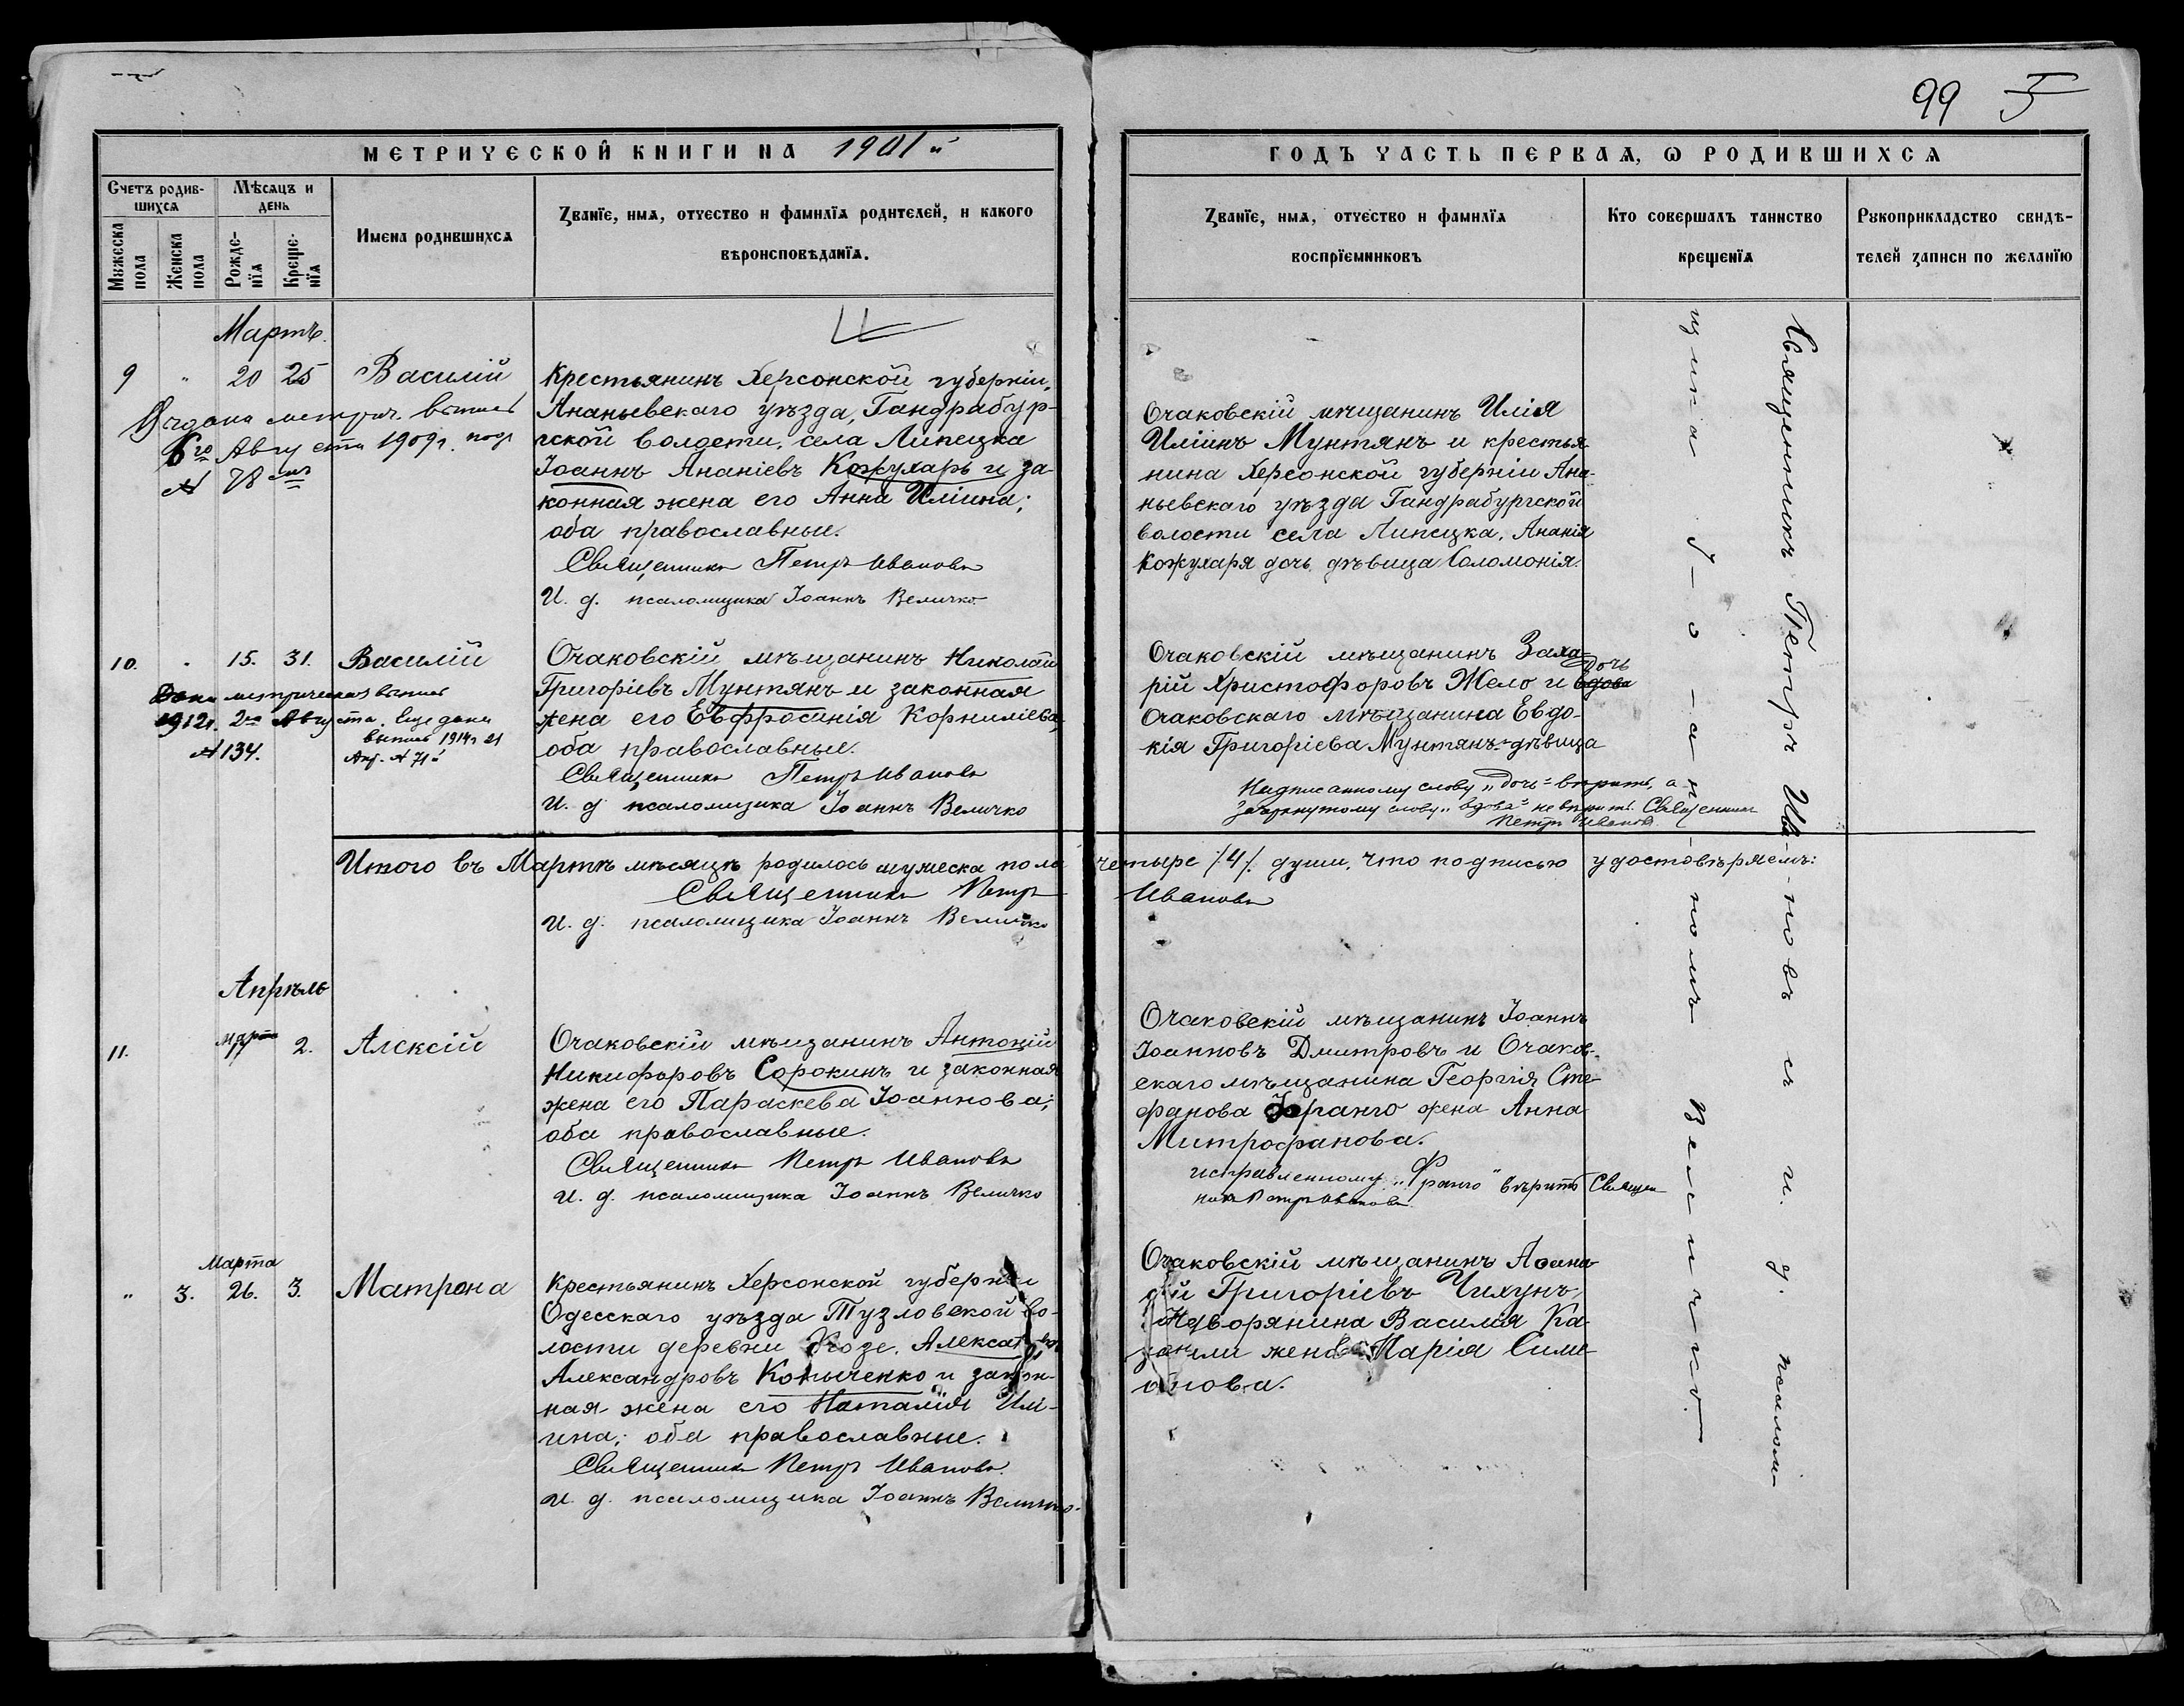 99 5
МЕТРИЧЕСКОЙ КНИГИ НА 1901й
ГОДЪ ЧАСТЬ ПЕРВАѦ, Ѡ РОДИВШИХСѦ
Счетъ родив-
шихсѧ
Мѣсѧцъ и
день
Мꙋжеска
пола
Женска
пола
Рожде-
нїѧ
Креще-
нїѧ
Имена родившихсѧ
Званїе, имѧ, отчество и фамилїѧ родителей, и какого
вѣроисповѣданїѧ.
Званїе, имѧ, отчество и фамилїѧ
воспрїемниковъ
Кто совершалъ таинство
крещенїѧ
Рꙋкоприкладство свидѣ-
телей записи по желанїю
Мартъ.
9 " 20 25 Василій
Выдана метрич. выпись
6го Августа 1909г. под
№ 78мъ
Крестьянинъ Херсонской губерніи,
Ананьевскаго уѣзда, Гандрабур-
гской волости, села Липецка
Іоаннъ Ананіевъ Кожухарь и за-
конная жена его Анна Иліина;
оба православные.
Священникъ Петръ Ивановъ
И. д. псаломщика Іоаннъ Величко
Очаковскій мѣщанинъ Илія
Иліинъ Мунтянъ и крестья-
нина Херсонской губерніи Ана-
ньевскаго уѣзда Гандрабургской
волости села Липецка, Ананія
Кожухаря дочь дѣвица Соломонія.
10. " 15. 31. Василій
Дана метрическая выпись
1912г. 2го Августа. Еще дана
выпись 1914г 21
№ 134. Апр. № 71й
Очаковскій мѣщанинъ Николай
Григоріевъ Мунтянъ и законная
жена его Евфросинія Корниліева,
оба православные.
Священникъ Петръ Ивановъ
И. д. псаломщика Іоаннъ Величко
Очаковскій мѣщанинъ Заха-
рій Христофоровъ Жело и вдова дочь
Очаковскаго мѣщанина Евдо-
кія Григоріева Мунтянъ-дѣвица
Надписанному слову „дочь" вѣрить, а
зачеркнутому слову „вдова" не вѣрить. Священникъ
Петръ Ивановъ.
Итого въ Мартѣ мѣсяцѣ родилось мужеска пола четыре /4/. души, что подписью удостовѣряемъ:
Священникъ Петръ Ивановъ
И. д. псаломщика Іоаннъ Величко
Апрѣль
11. Марта 2. Алексій
Очаковскій мѣщанинъ Антоній
Никифоровъ Сорокинъ и законная
жена его Параскева Іоаннова;
оба православные.
Священникъ Петръ Ивановъ
И. д. псаломщика Іоаннъ Величко
Очаковскій мѣщанинъ Іоаннъ
Іоанновъ Дмитровъ и Очаков-
скаго мѣщанина Георгія Сте-
фанова Франго жена Анна
Митрофанова.
исправленному „Франго" вѣрить Священ-
никъ Петръ Ивановъ.
Марта
" 3. 26. 3. Матрона
Крестьянинъ Херсонской губерніи
Одесскаго уѣзда Тузловской во-
лости деревни
Александровъ и закон-
ная жена его Наталія Илі-
ина; оба православные.
Священникъ Петръ Ивановъ.
И. д. псаломщика Іоаннъ Величко.
Очаковскій мѣщанинъ
Григоріевъ Чихунъ,
дворянина Василія Ка-
жена Марія Симе-
онова.
Священникъ Петръ Ива-новъ съ и. д. псалом-
щика І-о-ан-номъ Величко.